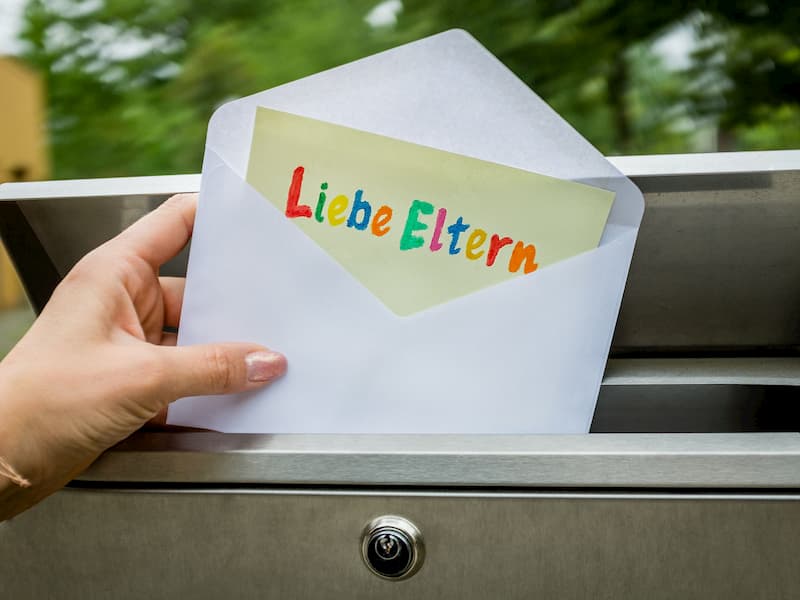 Liebe Eltern